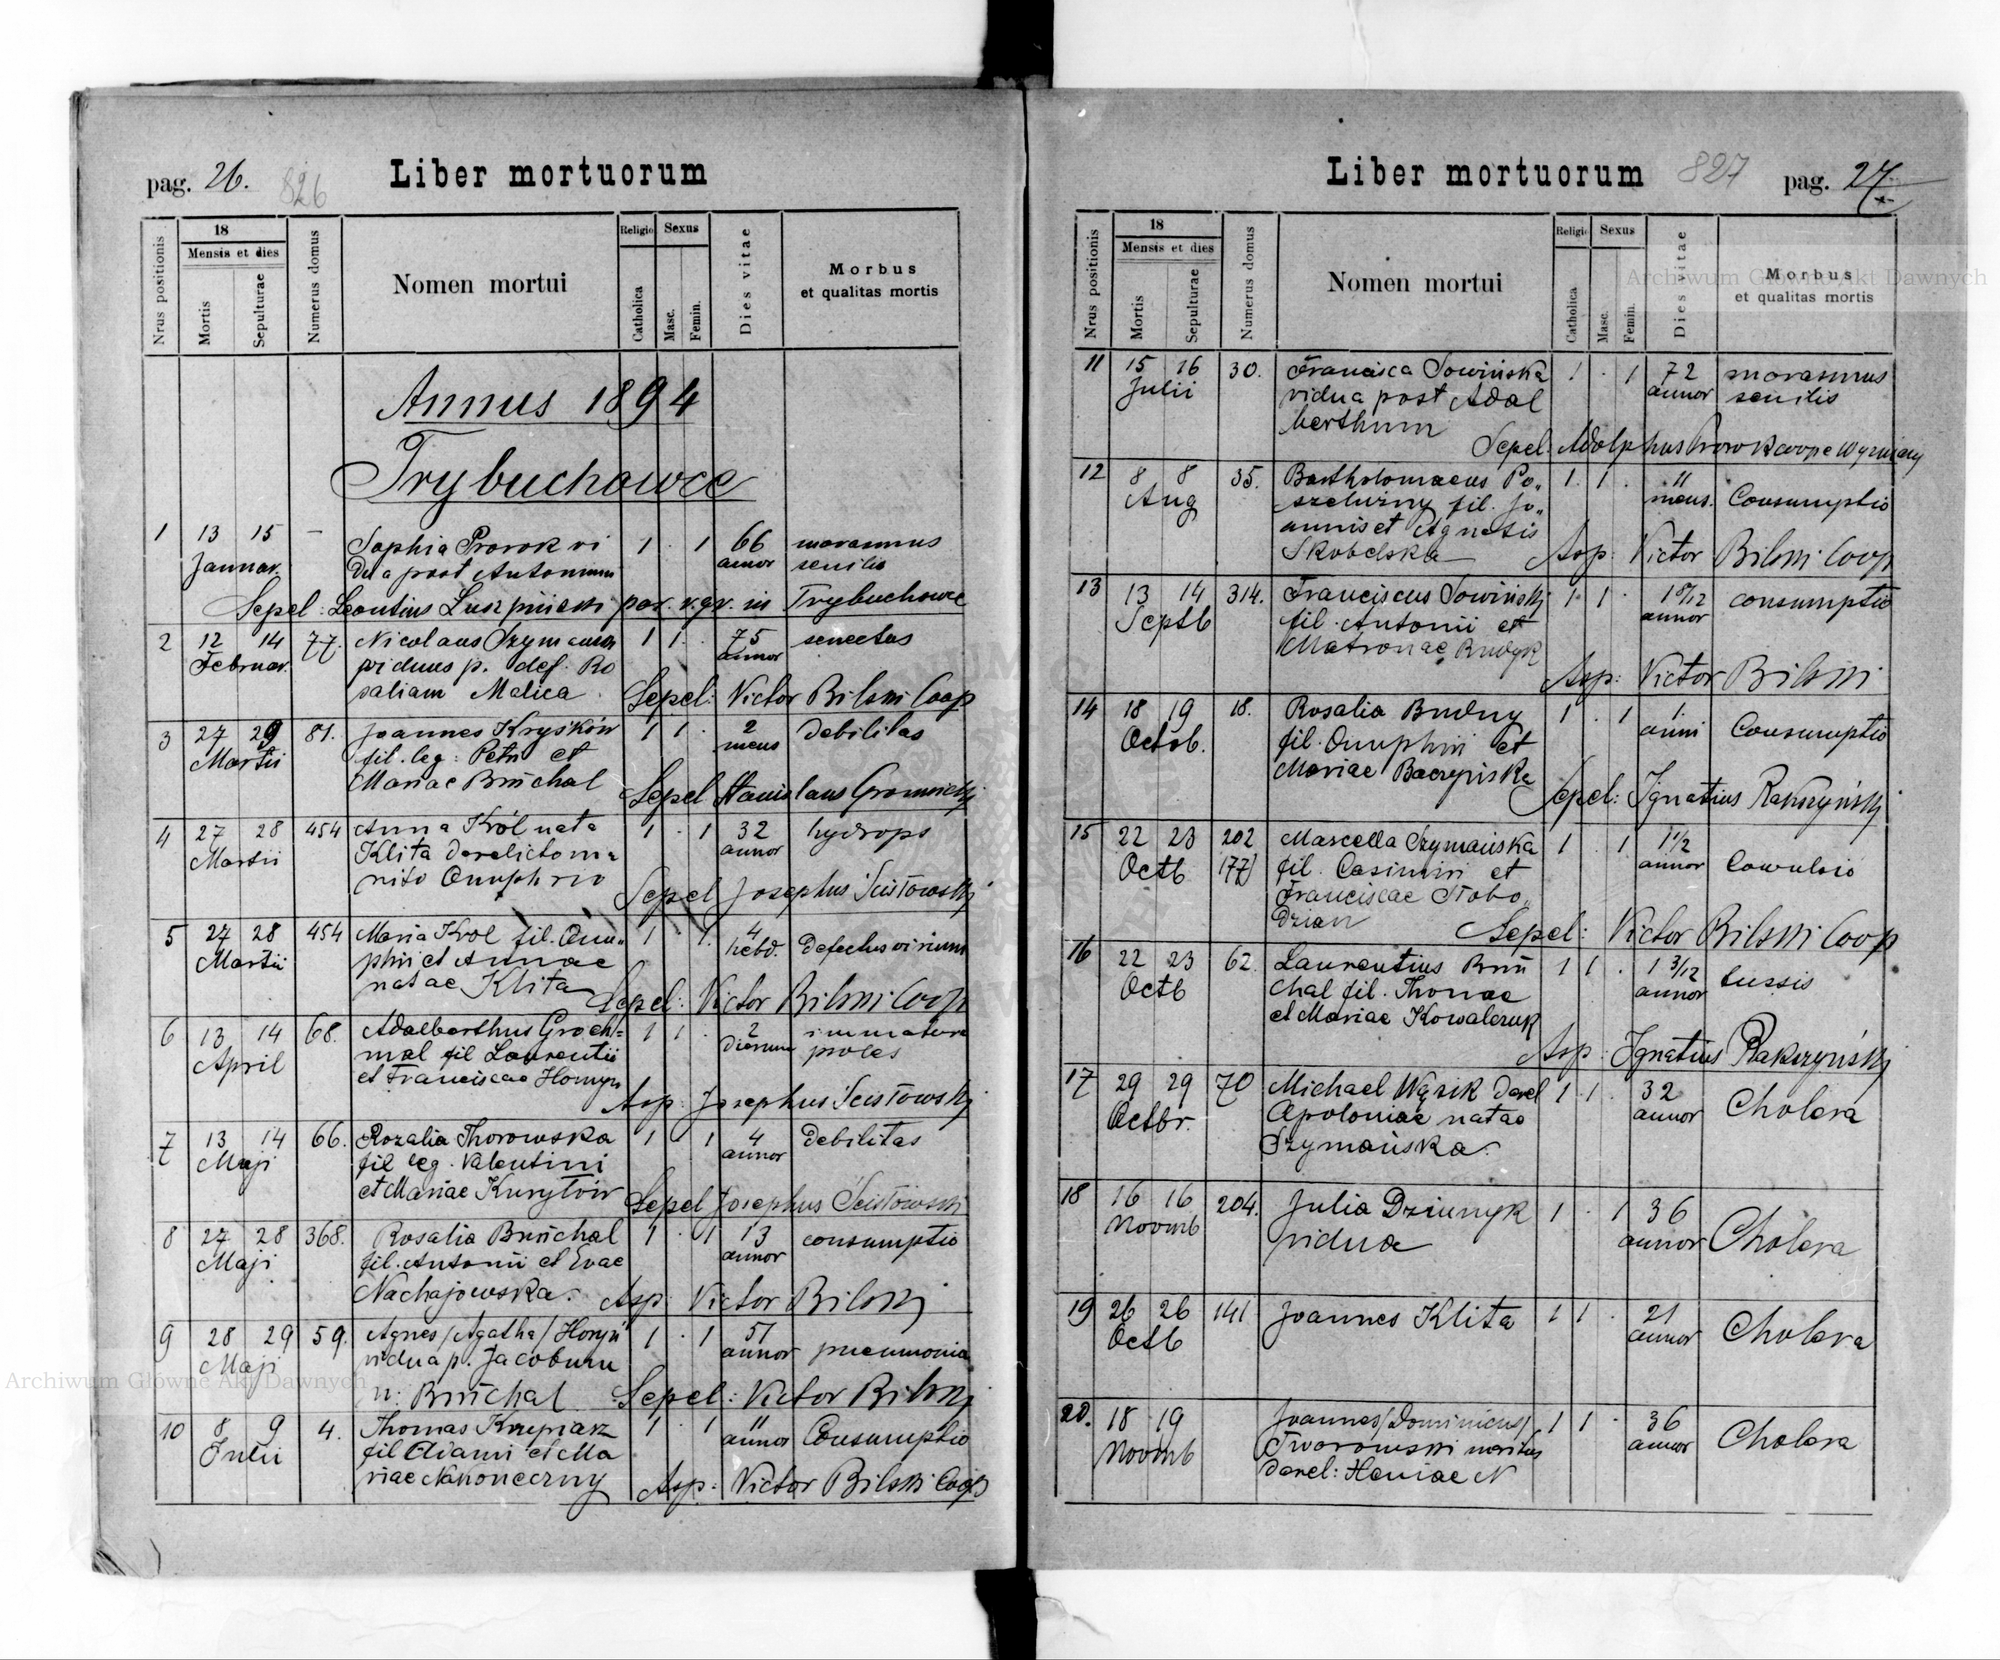 pag. 26. 826
Liber mortuorum
Nrus positionis
18
Mensis et dies
Mortis
Sepulturae
Numerus domus
Nomen mortui
Religio
Catholica
Sexus
Masc.
Femin.
Dies vitae
Morbus
et qualitas mortis
Annus 1894
Trybuchowce
1 13 15 – Sophia Prorok vi 1 · 1 66 marasmus
Januar. dua post Antonium annor senilis
Sepel: Leontius Luszpiński par. r. gr. in Trybuchowce
2 12 14 77. Nicolaus Szymański 1 1 · 75 senectus
Februar. viduus p. def. Ro annor
saliam Malica Sepel: Victor Bilski Coop
3 27 29 81. Joannes Kryśków 1 1 · 2 debilitas
Martii fil. leg: Petri et mens
Mariae Bruchal Sepel Stanislaus Gromnicki
4 27 28 454 Anna Król nata 1 · 1 32 hydrops
Martii Klita derelicto ma annor
rito Onuphrio Sepel Josephus Scisłowski
5 27 28 454 Maria Król fil. Onu„ 1 · 1. 4 defectus virium
Martii phri et Annae hebd.
natae Klita Sepel: Victor Bilski Coop
6 13 14 68. Adalbarthus Groch= 1 1 · 2 immatura
April mal fil Laurentii dierum proles
et Franciscae Homyn
Asp: Josephus Scisłowski
7 13 14 66. Rozalia Thorowska 1 · 1 4 debilitas
Maji fil leg. Valentini annor
et Mariae Kuryłów Sepel Josephus Scisłowski
8 27 28 368. Rosalia Bruchal 1 · 1 13 consumptio
Maji fil. Antonii et Evae annor
Nachajowska. Asp: Victor Bilski
9 28 29 59. Agnes/Agatha/ 1 · 1 51
Maji vidua p. Jacobum annor pneumonia
n: Bruchal Sepel: Victor Bilski
10 8 9 4. Thomas 1 · 1 11 Consumptio
Julii fil Adami et Ma annor
riae Nakoneczny Asp: Victor Bilski Coop
Liber mortuorum 827 pag. 27
Nrus positionis
18
Mensis et dies
Mortis
Sepulturae
Numerus domus
Nomen mortui
Religio
Catholica
Sexus
Masc.
Femin.
Dies vitae
Morbus
et qualitas mortis
11 15 16 30. Francisca Sowińska 1 · 1 72 marasmus
Julii vidua post Adal annor senilis
berthum
Sepel. Adolphus
12 8 8 35. Bartholomaeus Po„ 1. 1. 11 Consumptio
Aug szelużny fil. Jo„ mens.
annis et Agnetis
Skobelska Asp: Victor Bilski Coop
13 13 14 314. Franciscus Sowiński 1 · 1 · 1 9/12 consumptio
Septb fil. Antonii et annor
Matronae Rudyk
Asp: Victor Bilski
14 18 19 18. Rosalia Budny 1 · 1 1. Consumptio
Octob. fil. Onuphrii et anni
Mariae Baczyńska
Sepel: Ignatius Rakszyński
15 22 23 202 Marcella Szymańska 1 · 1 1 1/2 Convulsio
Octb (77) fil. Casimiri et annor
Franciscae Słobo„
dzian Sepel: Victor Bilski Coop
16 22 23 62. Laurentius Bru 1 1 · 1 3/12 tussis
Octb chal fil. Thomae annor
et Mariae Kowalczuk
Asp: Ignatius Rakszyński
17 29 29 70 Michael Wąsik derel 1 1 · 32 Cholera
Octbr. Apoloniae natae annor
Szymańska.
18 16 16 204. Julia Dziumyk 1 · 1 36 Cholera
Novmb vidua annor
19 26 26 141 Joannes Klita 1 1 · 21 Cholera
Octb annor
20. 18 19 Joannes/Dominicus/ 1 1 · 36 Cholera
Novmb Tworowski maritus annor
derel: Haniae N
Archiwum Główne Akt Dawnych
Archiwum Główne Akt Dawnych